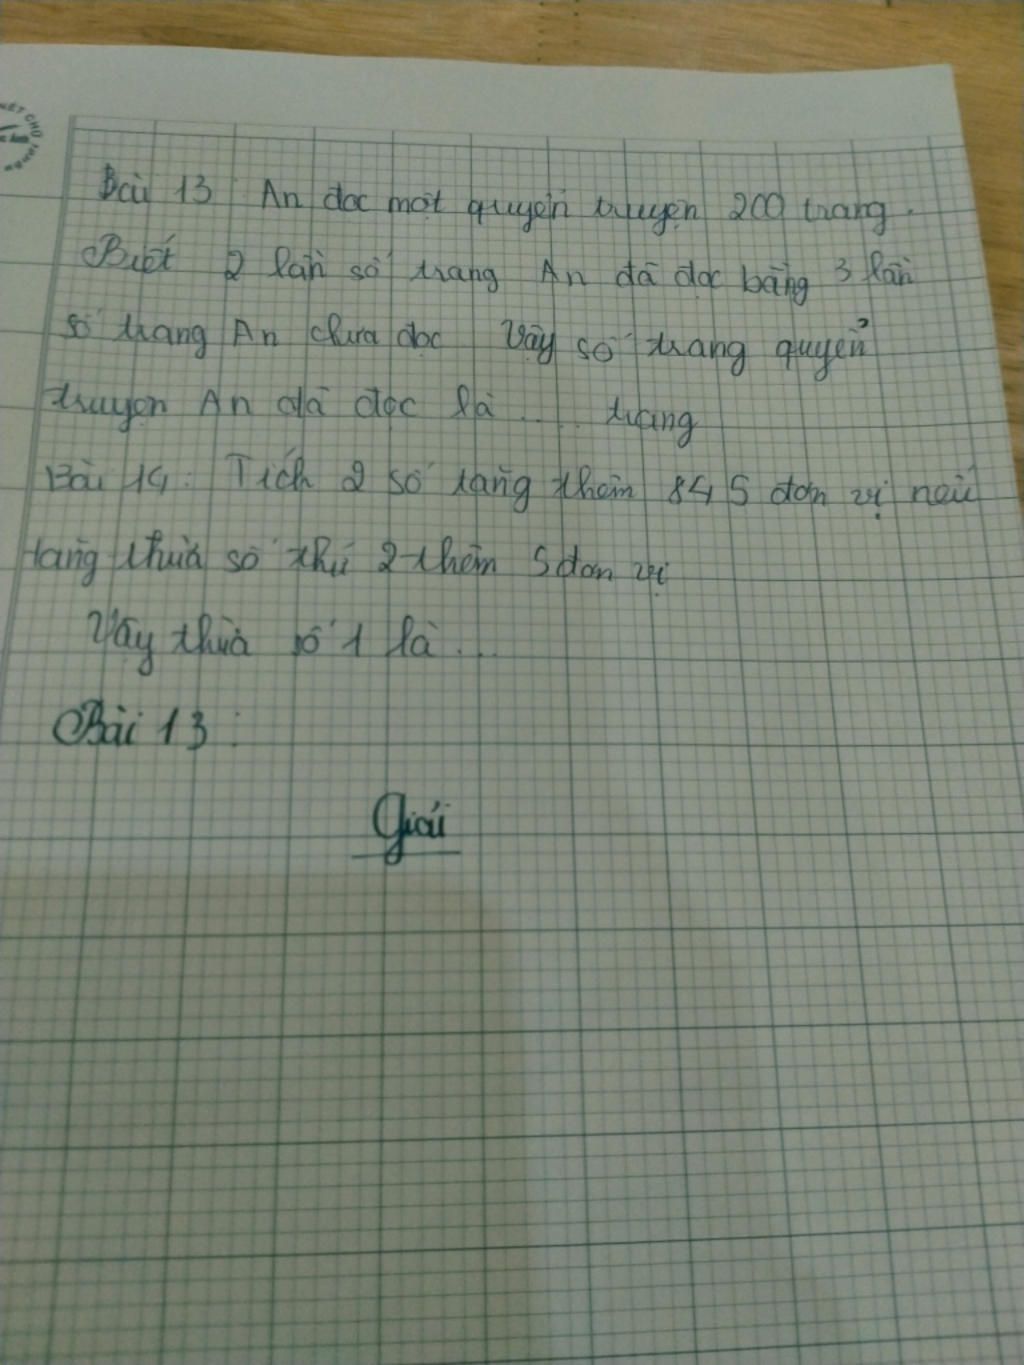 Bài 13: An đọc một quyển truyện 200 trang.
Biết 2 lần số trang An đã đọc bằng 3 lần
số trang An chưa đọc Vậy số trang quyển
truyện An đã đọc là .... trang
Bài 14: Tích 2 số tăng thêm 845 đơn vị nếu
tăng thừa số thứ 2 thêm 5 đơn vị
Vậy thừa số 1 là ...
Bài 13:
Giải